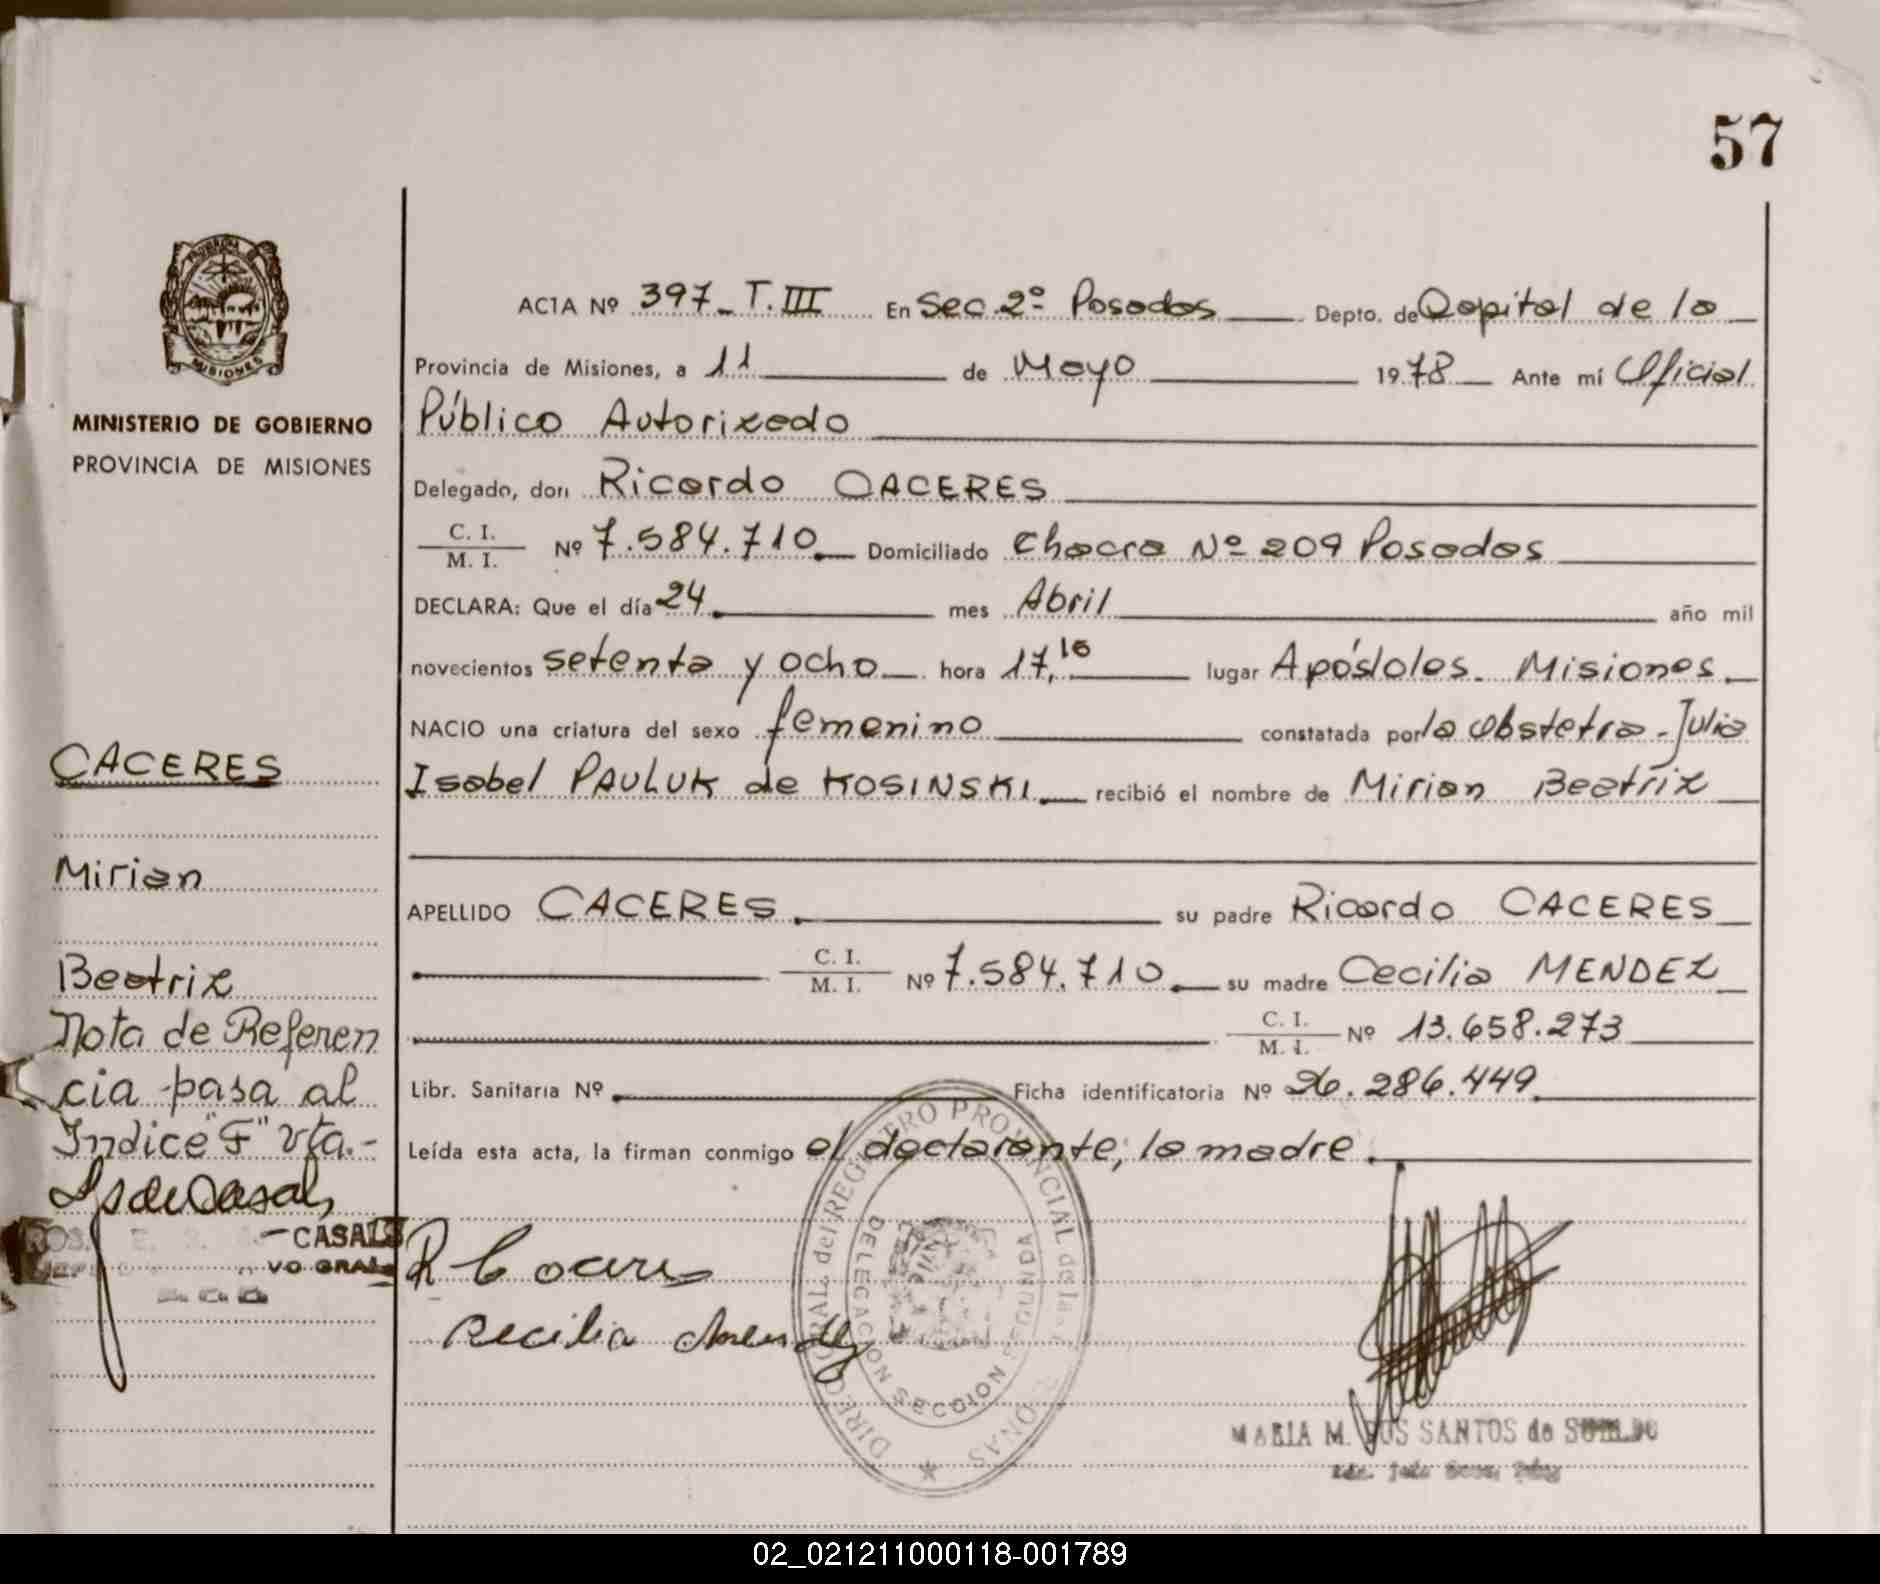 57
PROVINCIA DE
MISIONES
MINISTERIO DE GOBIERNO
PROVINCIA DE MISIONES
ACTA Nº 397_ T.III En Sec.2º Posadas Depto. de Capital de la
Provincia de Misiones, a 11 de Mayo 1978 Ante mí Oficial
Público Autorizado
Delegado, don Ricardo CACERES
C. I.
M. I. Nº 7.584.710 Domiciliado Chacra Nº 209 Posadas
DECLARA: Que el día 24 mes Abril año mil
novecientos setenta y ocho hora 17,10 lugar Apóstoles. Misiones.
NACIO una criatura del sexo femenino constatada por la obstetra. Julia
Isabel PAULUK de KOSINSKI recibió el nombre de Mirian Beatriz
APELLIDO CACERES su padre Ricardo CACERES
C. I.
M. I. Nº 7.584.710 su madre Cecilia MENDEZ
C. I.
M. I. Nº 13.658.273
Libr. Sanitaria Nº Ficha identificatoria Nº 26.286.449
Leída esta acta, la firman conmigo el declarante, la madre.
CACERES
Mirian
Beatriz
Nota de Referen
cia pasa al
Indice "F" vta.-
CASALS
VO GRAL
R Caceres
Cecilia Mendez
DIRECC GRAL del REGISTRO PROVINCIAL de las PERSONAS
DELEGACION SECCION SEGUNDA
MARIA M. DOS SANTOS de
02_021211000118-001789